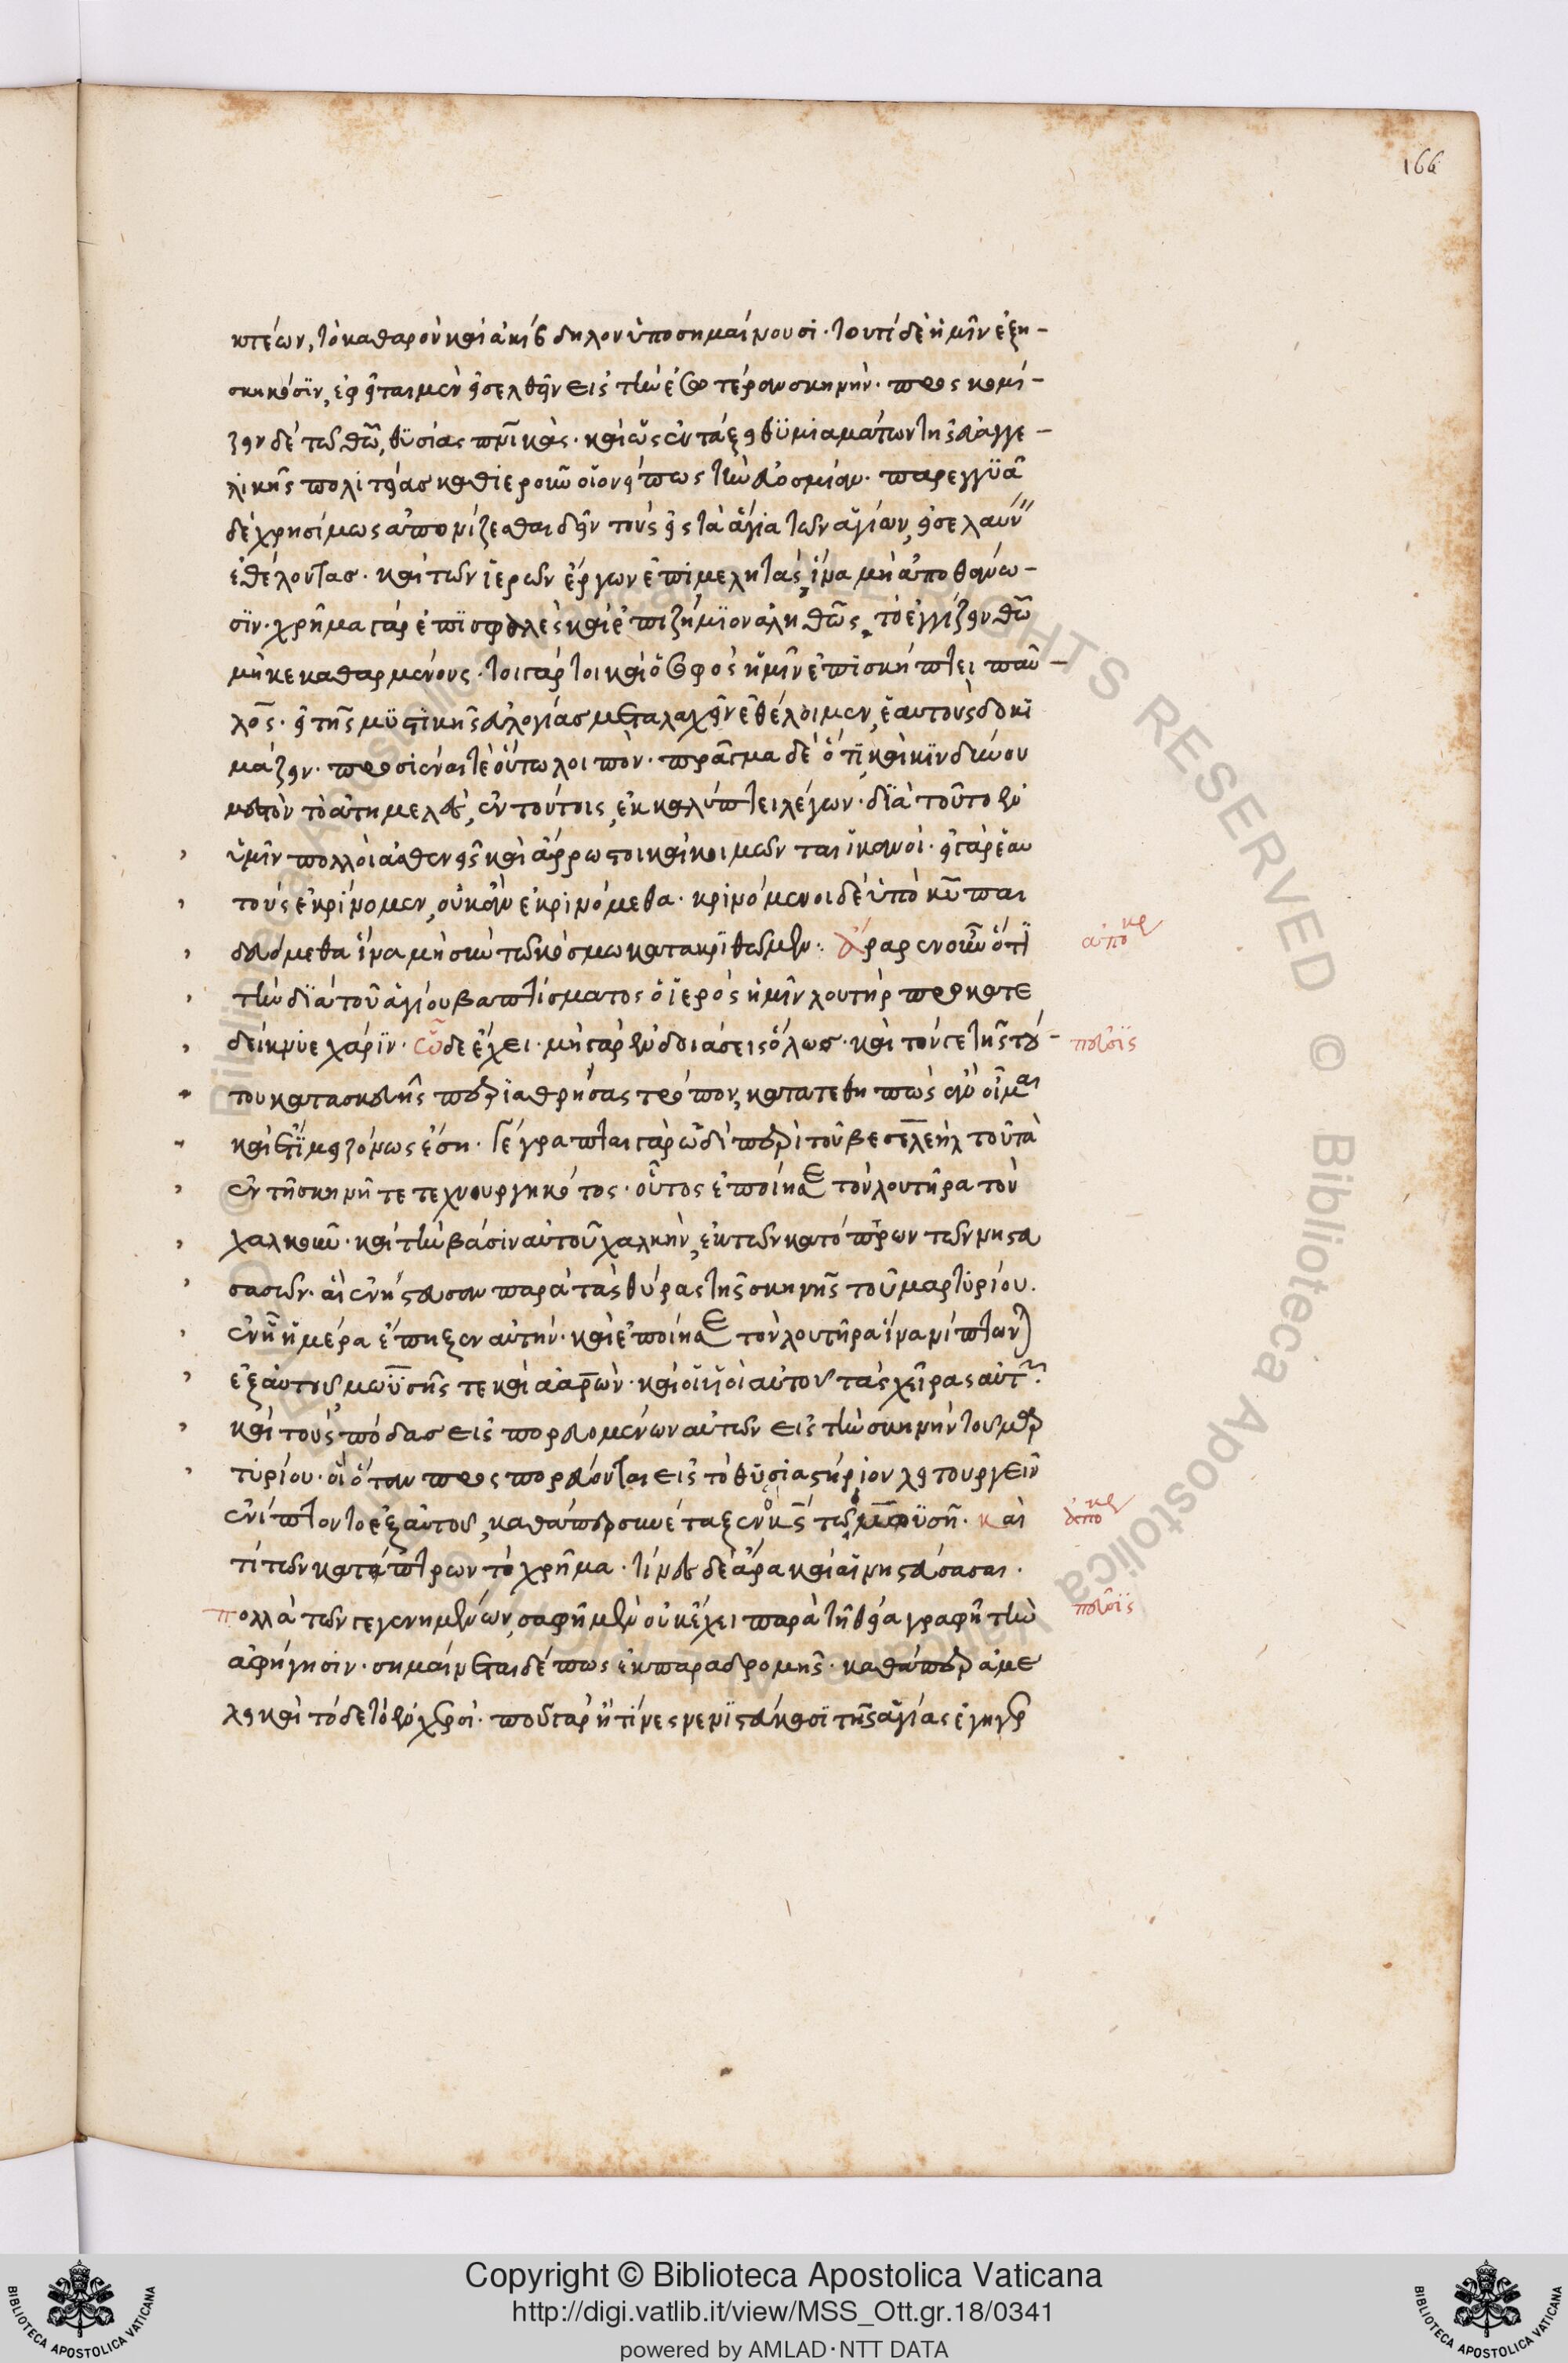 166
κτέων, τὸ καθαρὸν καὶ ἀκίβδηλον ὑποσημαίνουσι· τουτὶ δὲ ἡμῖν ἐξη-
σκηκόσϊν, ἐφεῖται μὲν εἰσελθεῖν εἰς τὴν ἐσωτέραν σκηνήν· προσκομί-
ζειν δὲ τῶ θῶ, θϋσίας πνϊκὰς· καὶ ὡς ἐν τάξει θϋμιαμάτων τῆς εὐαγγε-
λικῆς πολιτείας καθιεροῦν οἱονείπως τὴν εὐοσμίαν· παρεγγϋᾶ
δὲ χρησίμως ἀπονίζεσθαι δεῖν τοὺς εἰς τὰ ἅγϊα τῶν ἁγίων, εἰσελαύνειν
ἐθέλοντασ· καὶ τῶν ἱερῶν ἔργων ἐπιμελητὰς, ἵνα μὴ ἀποθάνω-
σϊν· χρῆμα γὰρ ἐπϊσφαλὲς καὶ ἐπιζήμϊον ἀληθῶς, τὸ ἐγγίζειν θῶ
μὴ κεκαθαρμένους· τοιγάρτοι καὶ ὁ σοφὸς ἡμῖν ἐπϊσκήπτει παῦ-
λος· εἰ τῆς μϋστϊκῆς εὐλογίας μεταλαχεῖν ἐθέλοιμεν, ἑαυτοὺς δοκϊ
μάζειν· προσϊέναι τε οὕτω λοιπὸν· πρᾶγμα δὲ ὅτϊ καὶ κϊνδύνου
μεστὸν τὸ ἀτημελὲς, ἐν τούτοις, ἐκκαλύπτει λέγων· δϊὰ τοῦτο ἐν
ὑμῖν πολλοὶ ἀσθενεῖς καὶ ἄρρωστοι καὶ κοιμῶνται ἱκανοί· εἰ γὰρ ἑαυ
τοὺς ἐκρίνομεν, οὐκ ἂν ἐκρινόμεθα· κρινόμενοι δὲ ὑπὸ κυ παι
δευόμεθα ἵνα μὴ σὺν τῶ κόσμω κατακρϊθῶμεν:. ἆραρεν οὖν ὅτϊ
ἀποκρ
τὴν δϊὰ τοῦ ἁγίου βαπτίσματος ὁ ἱερὸς ἡμῖν λουτὴρ προκατε
δείκνυε χάρϊν· ὧδε ἔχει· μὴ γὰρ ἐνδοιάσεις ὅλωσ· καὶ τόν γε τῆς τού-
του κατασκευῆς περϊαθρήσας τρόπον, κατατεθήπως ἂν οἶμαι
καὶ ἔτϊ μειζόνως ἔση· Γέγραπται γὰρ ὡδὶ περὶ τοῦ βεσελεὴλ τοῦ τὰ
ἐν τῆ σκηνῆ τετεχνουργηκότος· οὗτος ἐποίησε τὸν λουτῆρα τὸν
χαλκοῦν· καὶ τὴν βάσϊν αὐτοῦ χαλκῆν, ἐκ τῶν κατόπτρων τῶν νηστευ
σασῶν· αἳ ἐνήστευσαν παρὰ τὰς θύρας τῆς σκηνῆς τοῦ μαρτϋρίου.
ἐν ἧ ἡμέρα ἔπηξεν αὐτήν· καὶ ἐποίησε τὸν λουτῆρα ἵνα νίπτωνται
ἐξ αὐτοῦ μωϋσῆς τε καὶ ἀαρὼν· καὶ οἱ υἱοὶ αὐτοῦ τὰς χεῖρας αὐτῶν
καὶ τοὺς πόδασ εἰσπορευομένων αὐτῶν εἰς τὴν σκηνὴν τοῦ μαρ
τυρίου· οἳ ὅταν προσπορεύονται εἰς τὸ θϋσϊαστήριον λειτουργεῖν
ἐνίπτοντο ἐξ αὐτοῦ, καθάπερ συνέταξεν ὁ κς τῶ μωϋσῆ· καὶ
τί τῶν κατόπτρων τὸ χρῆμα· τίνες δὲ ἄρα καὶ αἱ νηστεύσασαι·
πολλὰ τῶν γεγενημένων, σαφῆ μὲν οὐκ ἔχει παρὰ τῆ θεία γραφῆ τὴν
ἀφήγησιν· σημαίνεται δέ πως ἐκ παραδρομῆς· καθάπερ ἀμέ
λει καὶ τόδε τὸ ἐν χερσί· ποῦ γὰρ ἢ τίνες νενϊστεύκασϊ τῆς ἁγίας ἐγηγερ